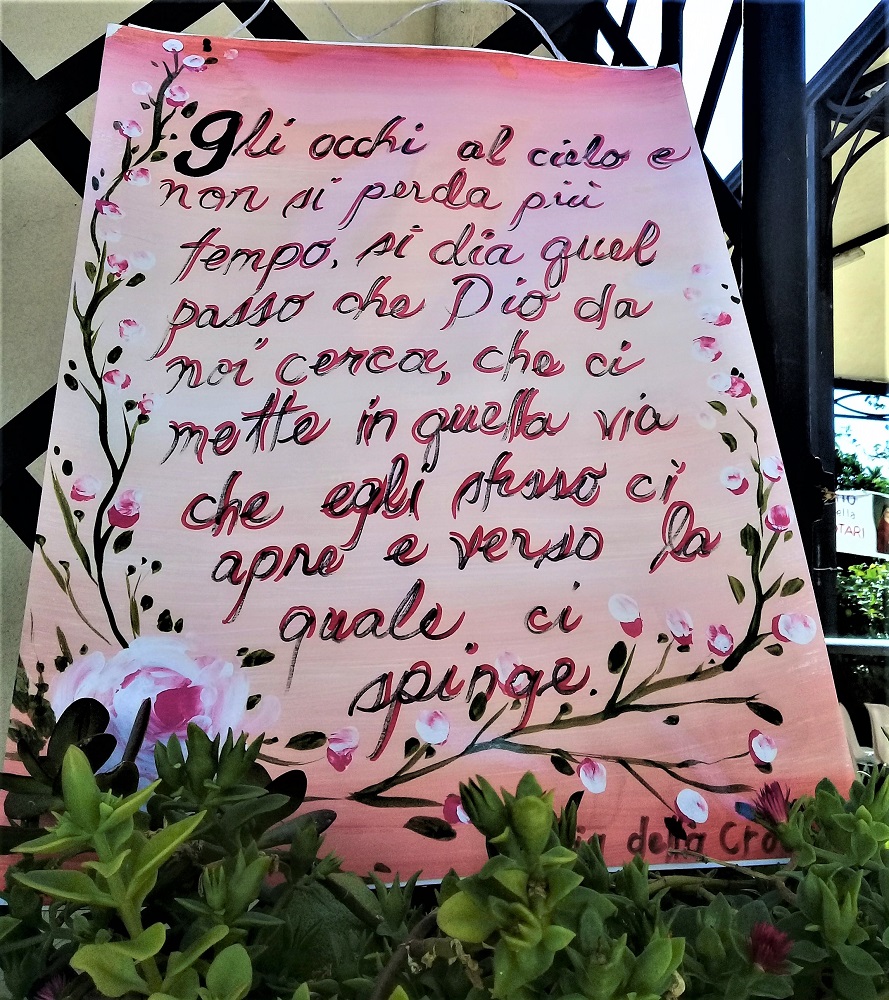 Gli occhi al cielo e
non si perda più
tempo, si dia quel
passo che Dio da
noi cerca, che ci
mette in quella via
che egli stesso ci
apre e verso la
quale ci
spinge.
della
TARI